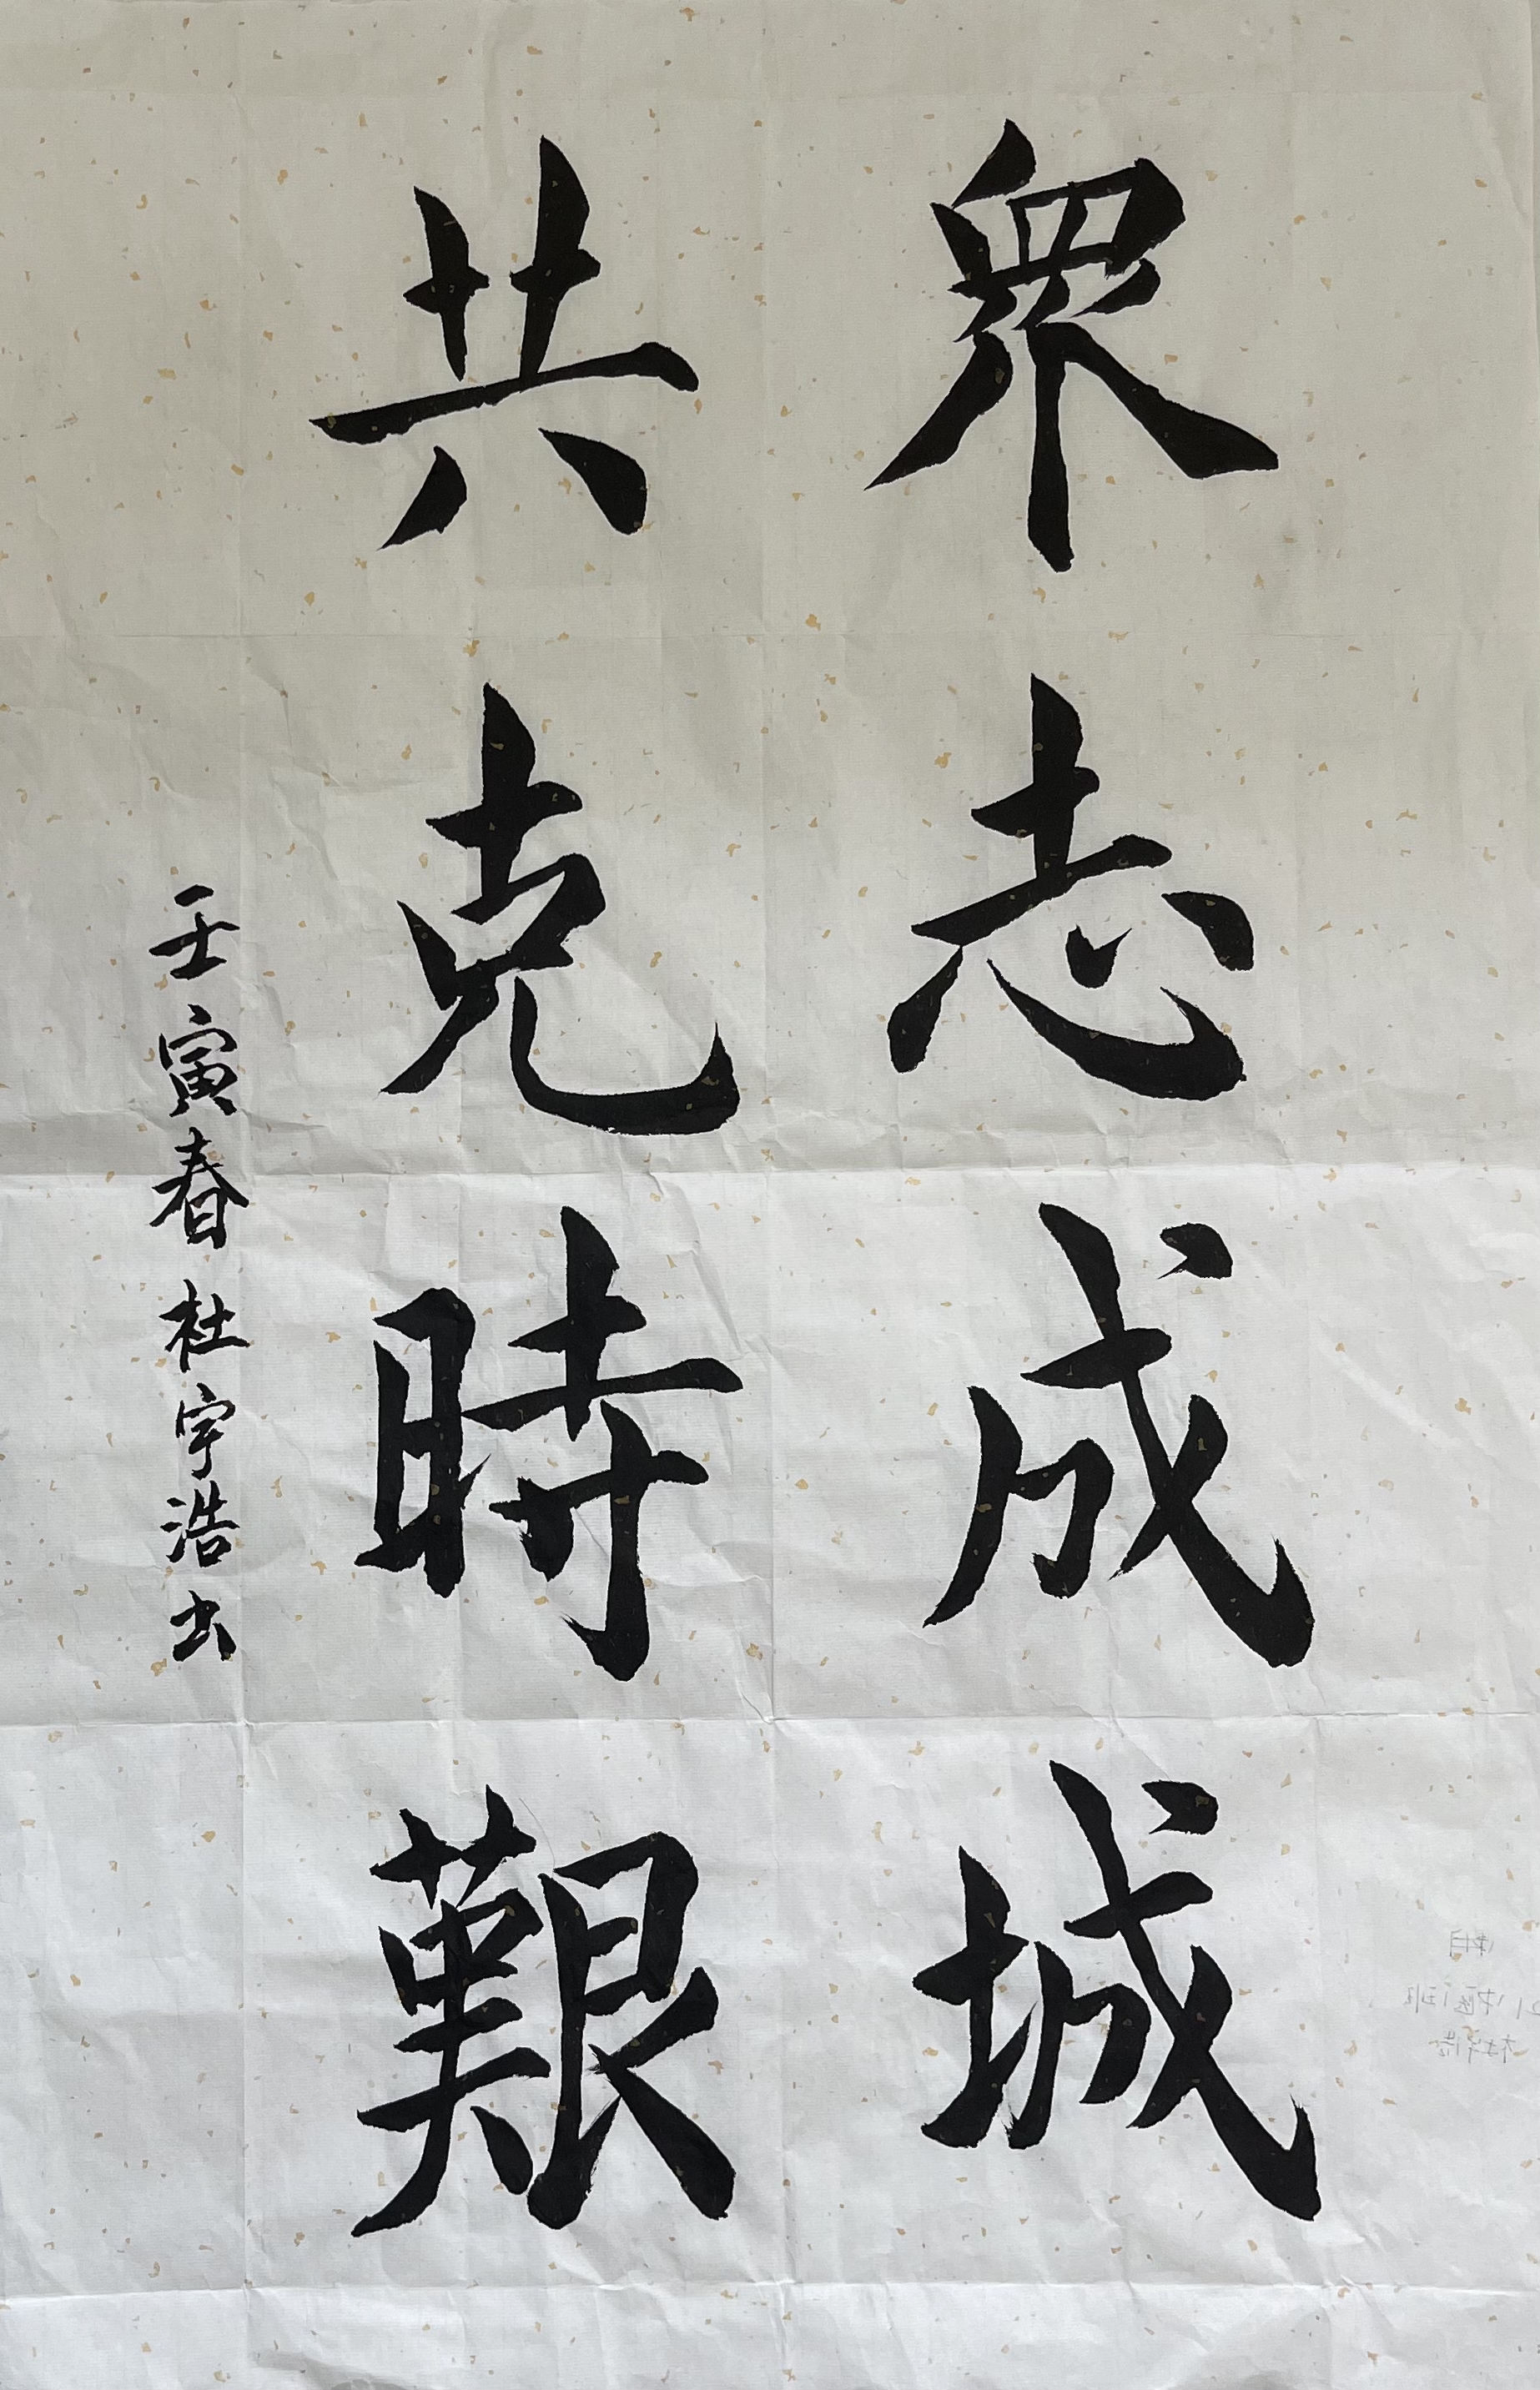 眾志成城
共克時艱
壬寅春 杜宇浩书